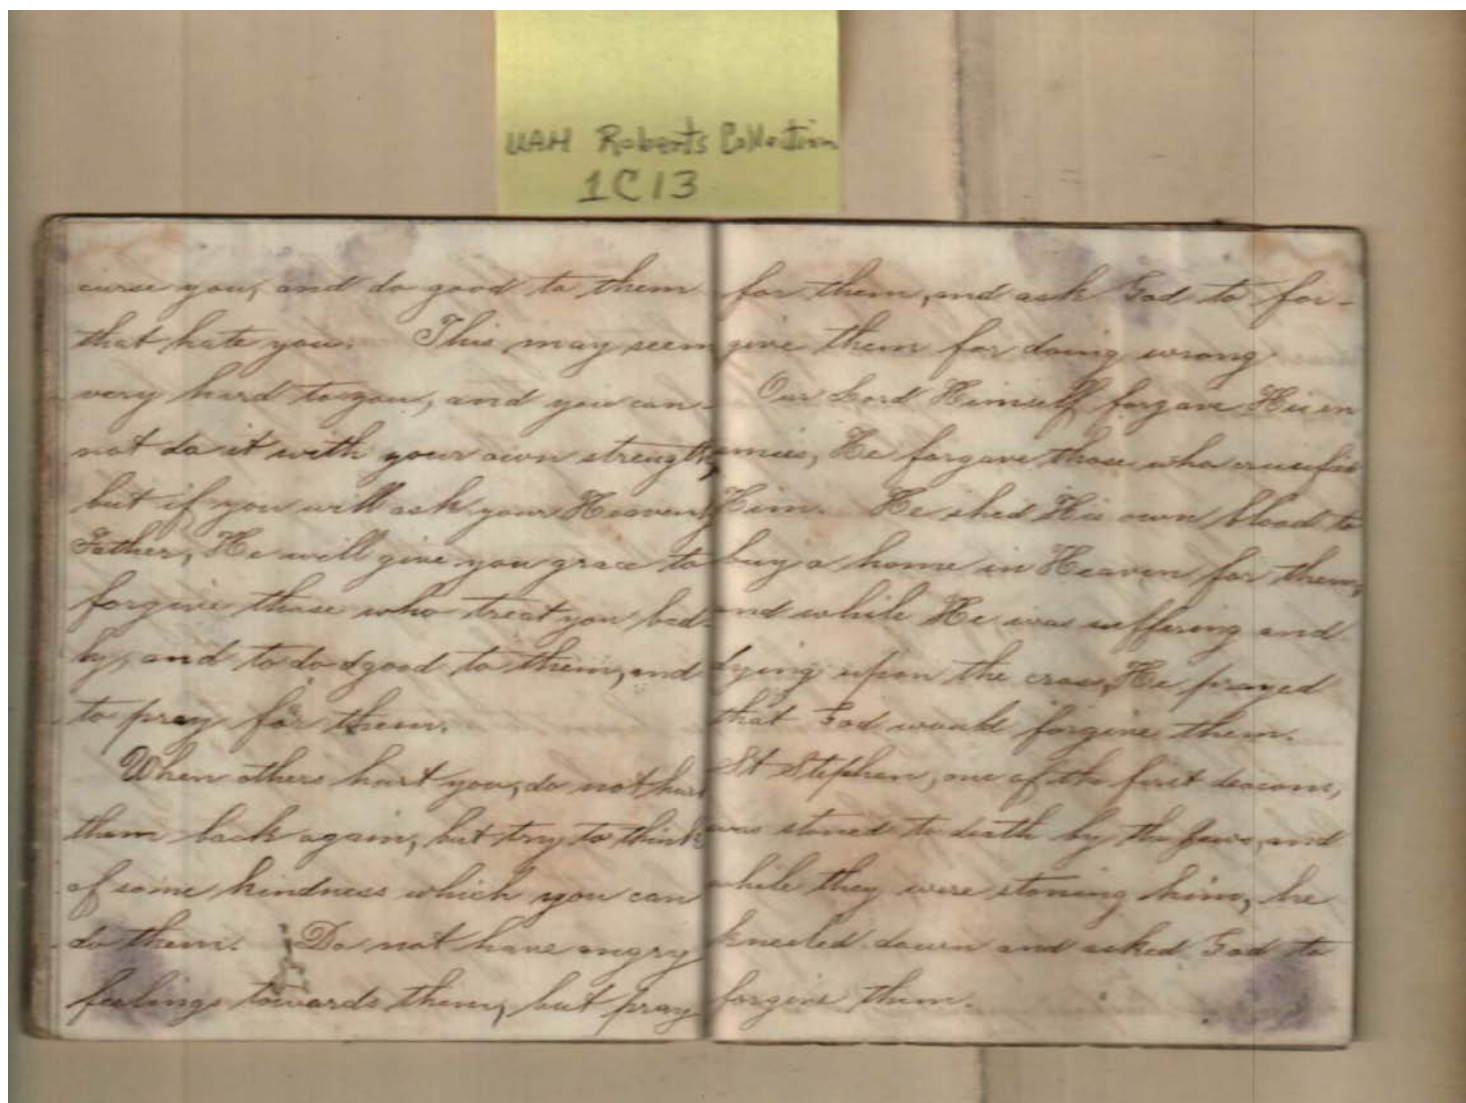 UAH Roberts Collection
1C13
curse you, and do good to them
that hate you. This may seem
very hard to you, and you can-
not do it with your own strength,
but if you will ask your Heavenly
Father, He will give you grace to
forgive those who treat you bad-
ly, and to do good to them, and
to pray for them.
When others hurt you, do not hurt
them back again, but try to think
of some kindness which you can
do them. Do not have angry
feelings towards them, but pray
for them, and ask God to for-
give them for doing wrong
Our Lord Himself forgave His en
emies, He forgave those who crucified
Him. He shed His own blood to
buy a home in Heaven for them,
and while He was suffering and
dying upon the cross, He prayed
that God would forgive them.
St Stephen, one of the first deacons,
was stoned to death by the Jews, and
while they were stoning him, he
kneeled down and asked God to
forgive them.